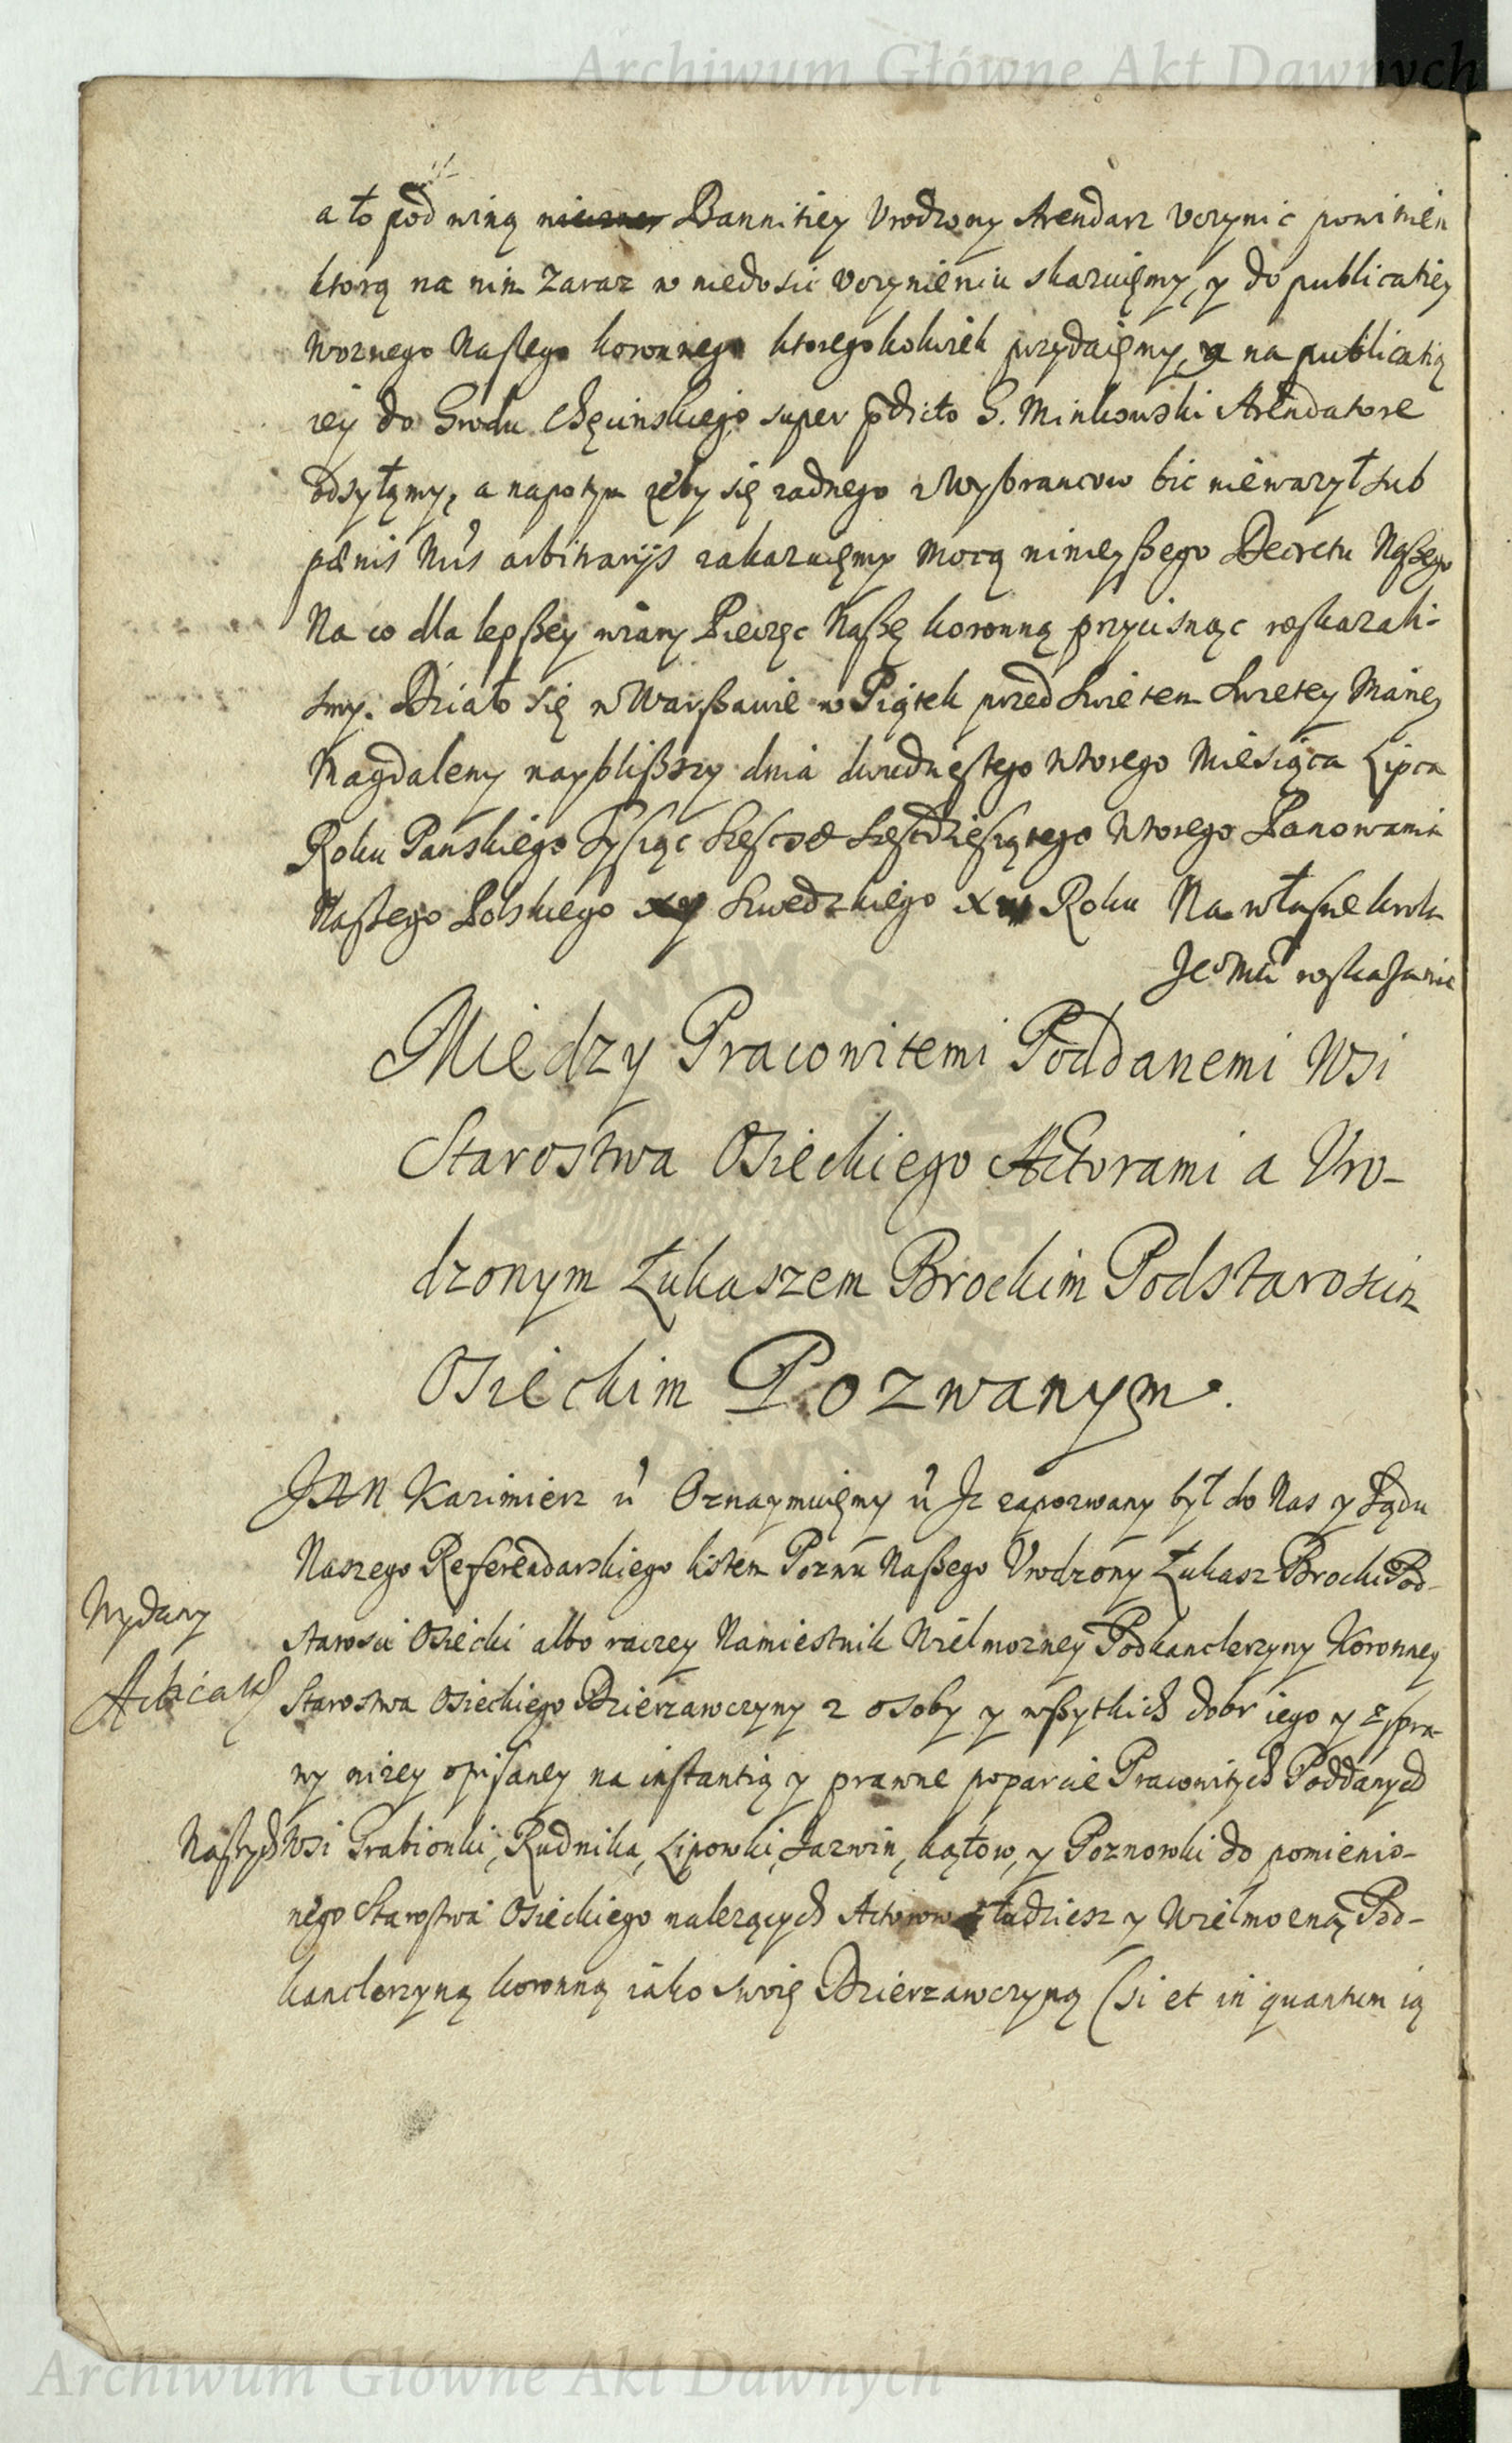 Archiwum Główne Akt Dawnych
a to pod winą Bannitiey Vrodzony Arendarz vczynic powinien
ktorą na nim zaraz w niedosic vczynieniu skazuięmy, y do publicatiey
Woznego Naszego koronnego ktoregokolwiek przydaięmy, a na publicatią
iey do Grodu Chęcinskiego super pdicto G. Minkowski Arendatore
odsyłamy, a napotym zeby się zadnego z Wybrancow bic niewazył sub
pænis Nris arbitrarijs zakazuięmy mocą ninieyßego Decretu Naßego
Na co dla lepßey wiary Pieczęc Naßę koronną przycisnąc roskazali-
smy. Działo się w Warßawie w Piątek przed Swietem Swietey Mariey
Magdaleny naybliższy dnia dwudziestego wtorego Miesiąca Lipca
Roku Panskiego Tysiąc szescset szescdziesiątego wtorego Panowania
Naszego Polskiego Szwedzkiego Roku Na własne krola
Je° Mci roskazanie
Miedzy Pracowitemi Poddanemi Wsi
Starostwa Osieckiego Actorami a Vro-
dzonym Łukaszem Brockim Podstaroscim
Osieckim Pozwanym.
JAN Kazimierz ū Oznaymuięmy ū Jz zapozwany był do Nas y Sądu
Naszego Referendarskiego listem Pozwu Naßego Vrodzony Łukasz Brocki Pod-
starosci Osiecki albo raczey Namiestnik Wielmozney Podkanclerzyny Koronney
Wydany
Starostwa Osieckiego Dzierzawczyny z osoby y wßytkich dobr iego y z spra-
wy nizey opisaney na instantią y prawne poparcie Pracowitych Poddanych
Naszych Wsi Grabionki, Rudnika, Lipowki, Jazwin, kątow, y Poznowki do pomienio-
nego Starostwa Osieckiego nalezących Actorow tudziesz y Wielmozną Pod-
kanclerzyną koronną iako swoię Dzierzawczyną (si et in quantum ią
Archiwum Główne Akt Dawnych